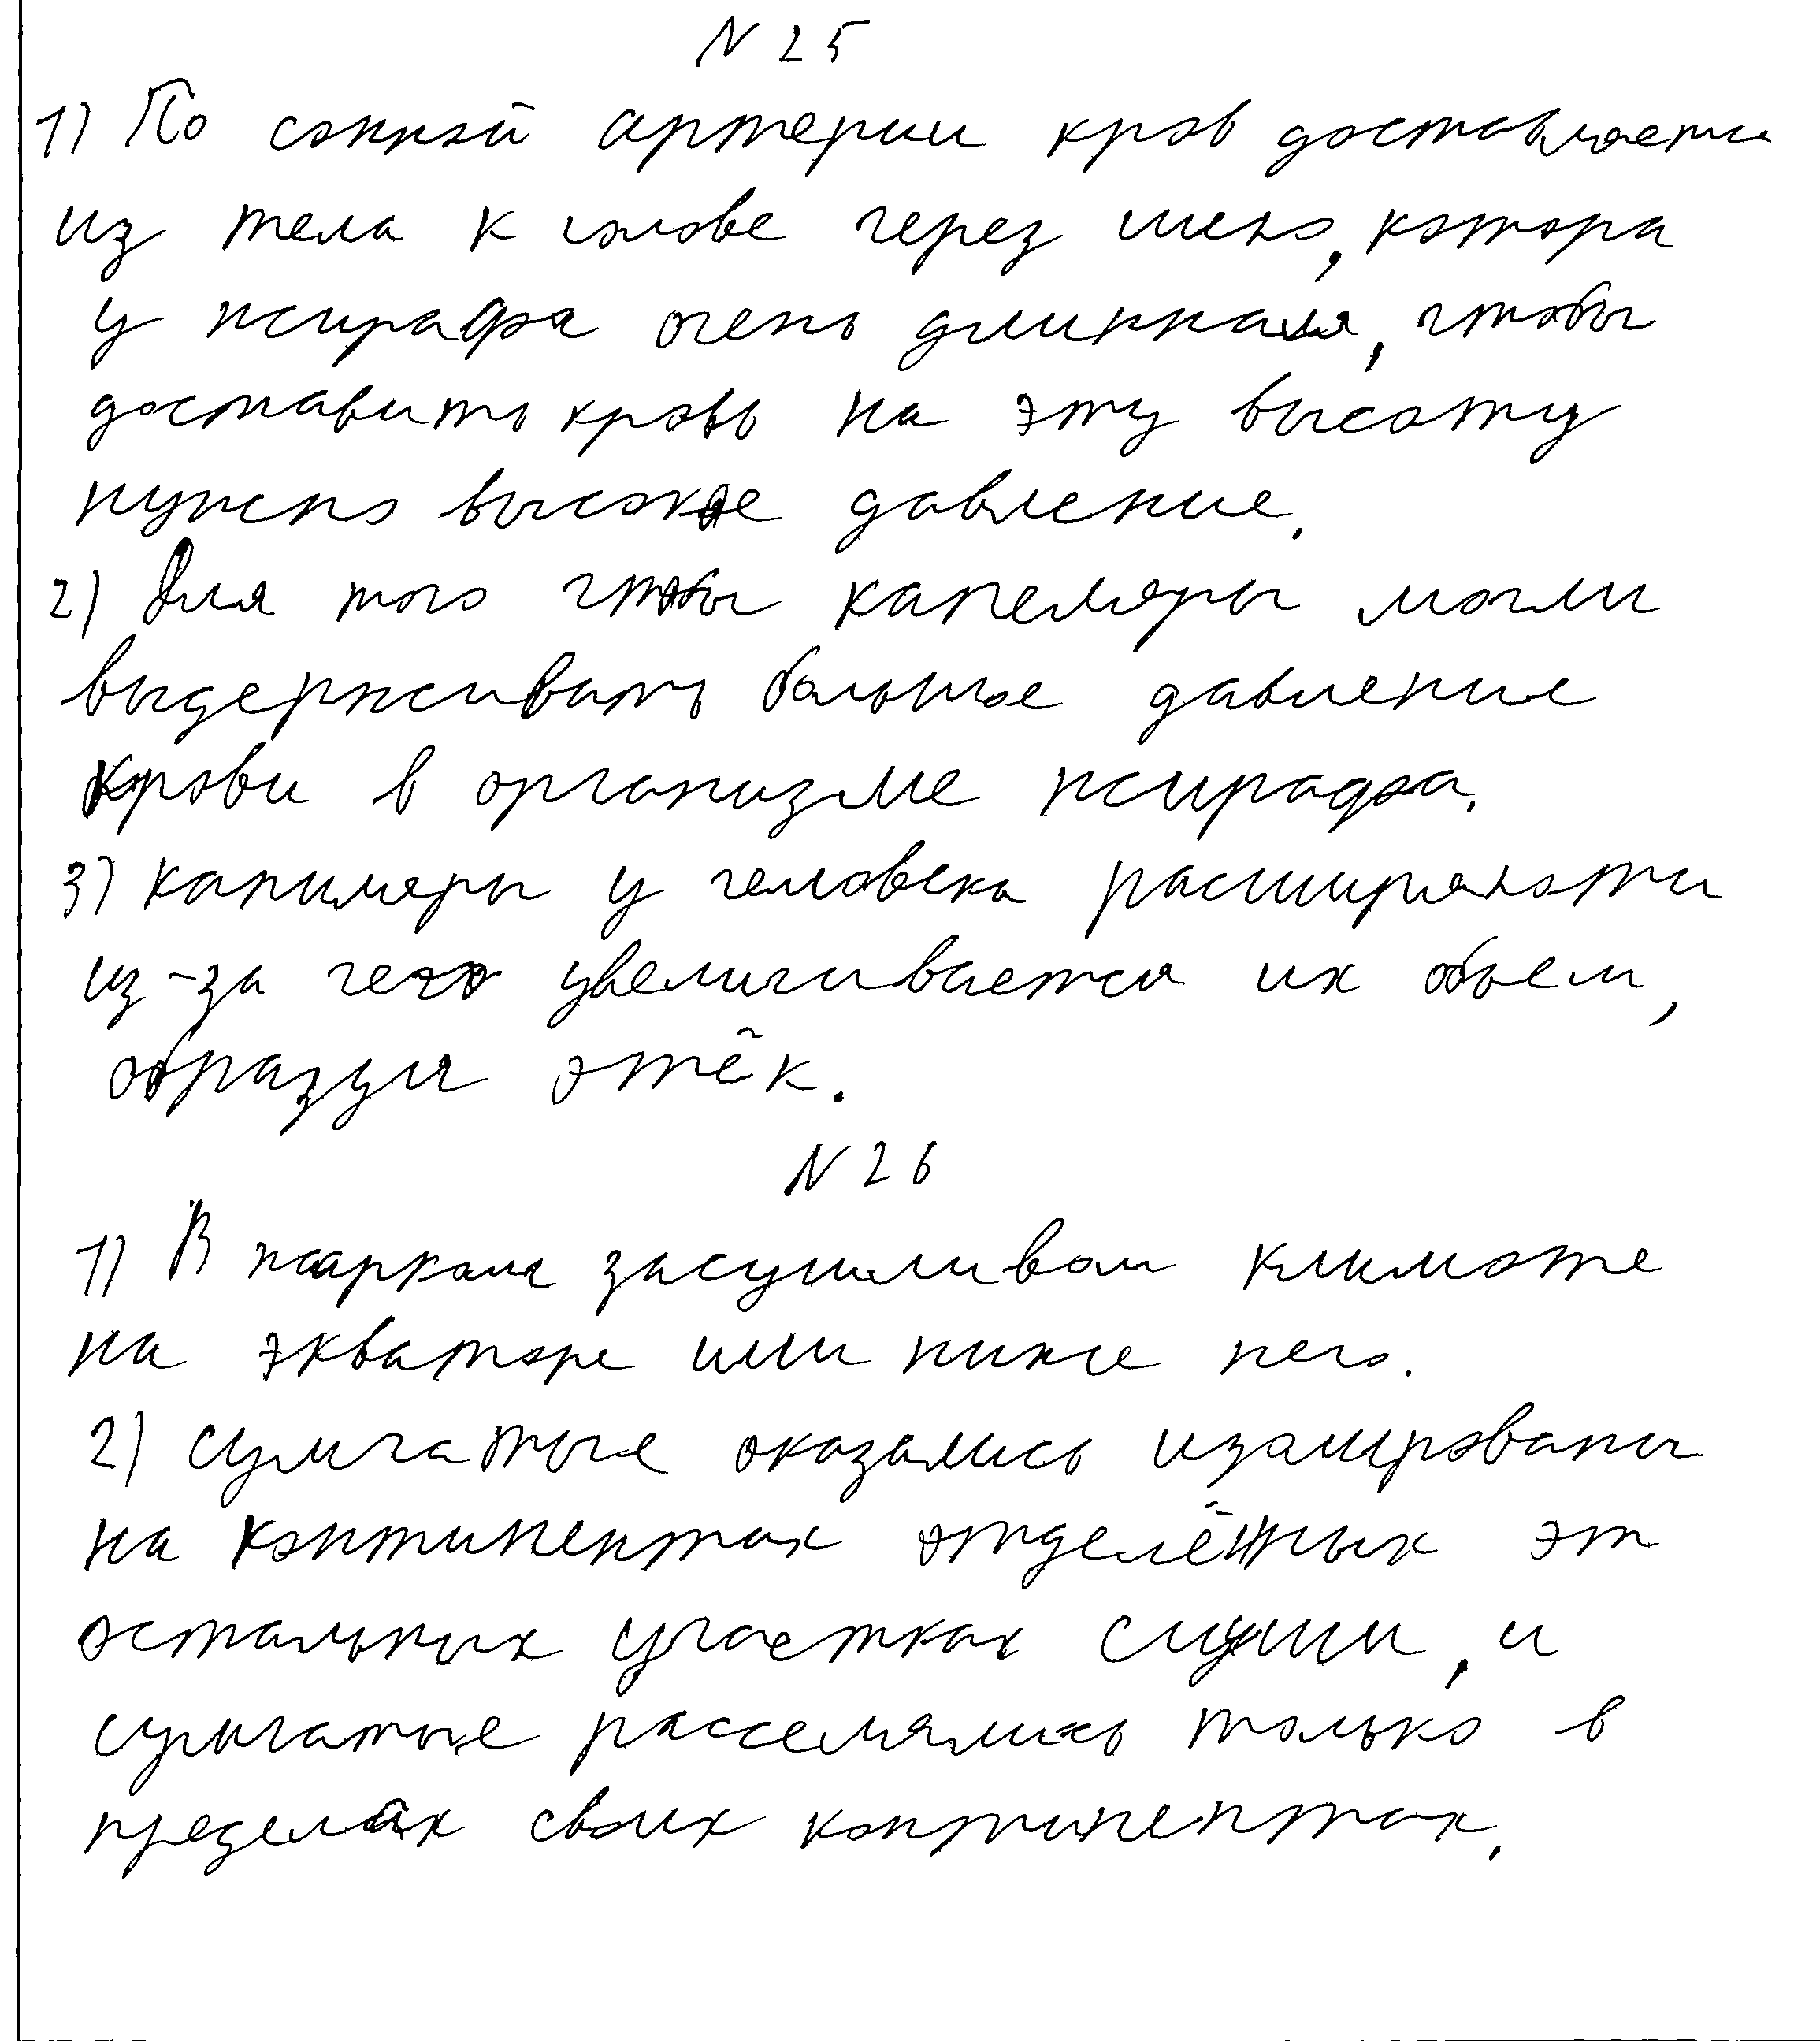 N 25
1) По сонной артерии кров доставляется
из тела к голове через шею, котора
у жирафа очень длинная, чтобы
доставить кровь на эту высоту
нужно высокое давление.
2) Для того чтобы капеляры могли
выдерживать большое давление
крови в организме жирафа.
3) капиляры у человека расширяются
из-за чего увеличивается их объем,
образуя отёк.
N 26
1) В жарком засушливом климоте
на экваторе или ниже него.
2) сумчатые оказались изолированы
на континентах отделённых от
остальных участках суши, и
сумчатые расселялись только в
пределах своих континентах.